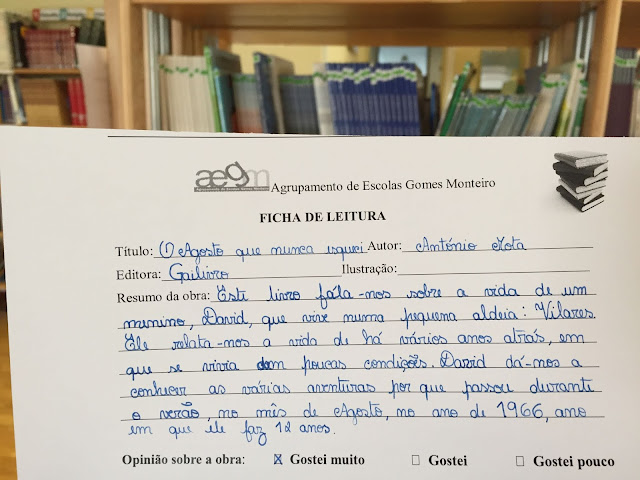 aegm Agrupamento de Escolas Gomes Monteiro
FICHA DE LEITURA
Título: O Agosto que nunca esqueci Autor: António Mota
Editora: Gailivro Ilustração:
Resumo da obra: Este livro fála-nos sobre a vida de um
menino, David, que vive numa pequena aldeia: Vilares.
Ele relata-nos a vida de há vários anos atrás, em
que se vivia com poucas condições. David dá-nos a
conhecer as várias aventuras por que passou durante
o verão, no mês de Agosto, no ano de 1966, ano
em que ele faz 12 anos.
Opinião sobre a obra: ☒ Gostei muito ☐ Gostei ☐ Gostei pouco